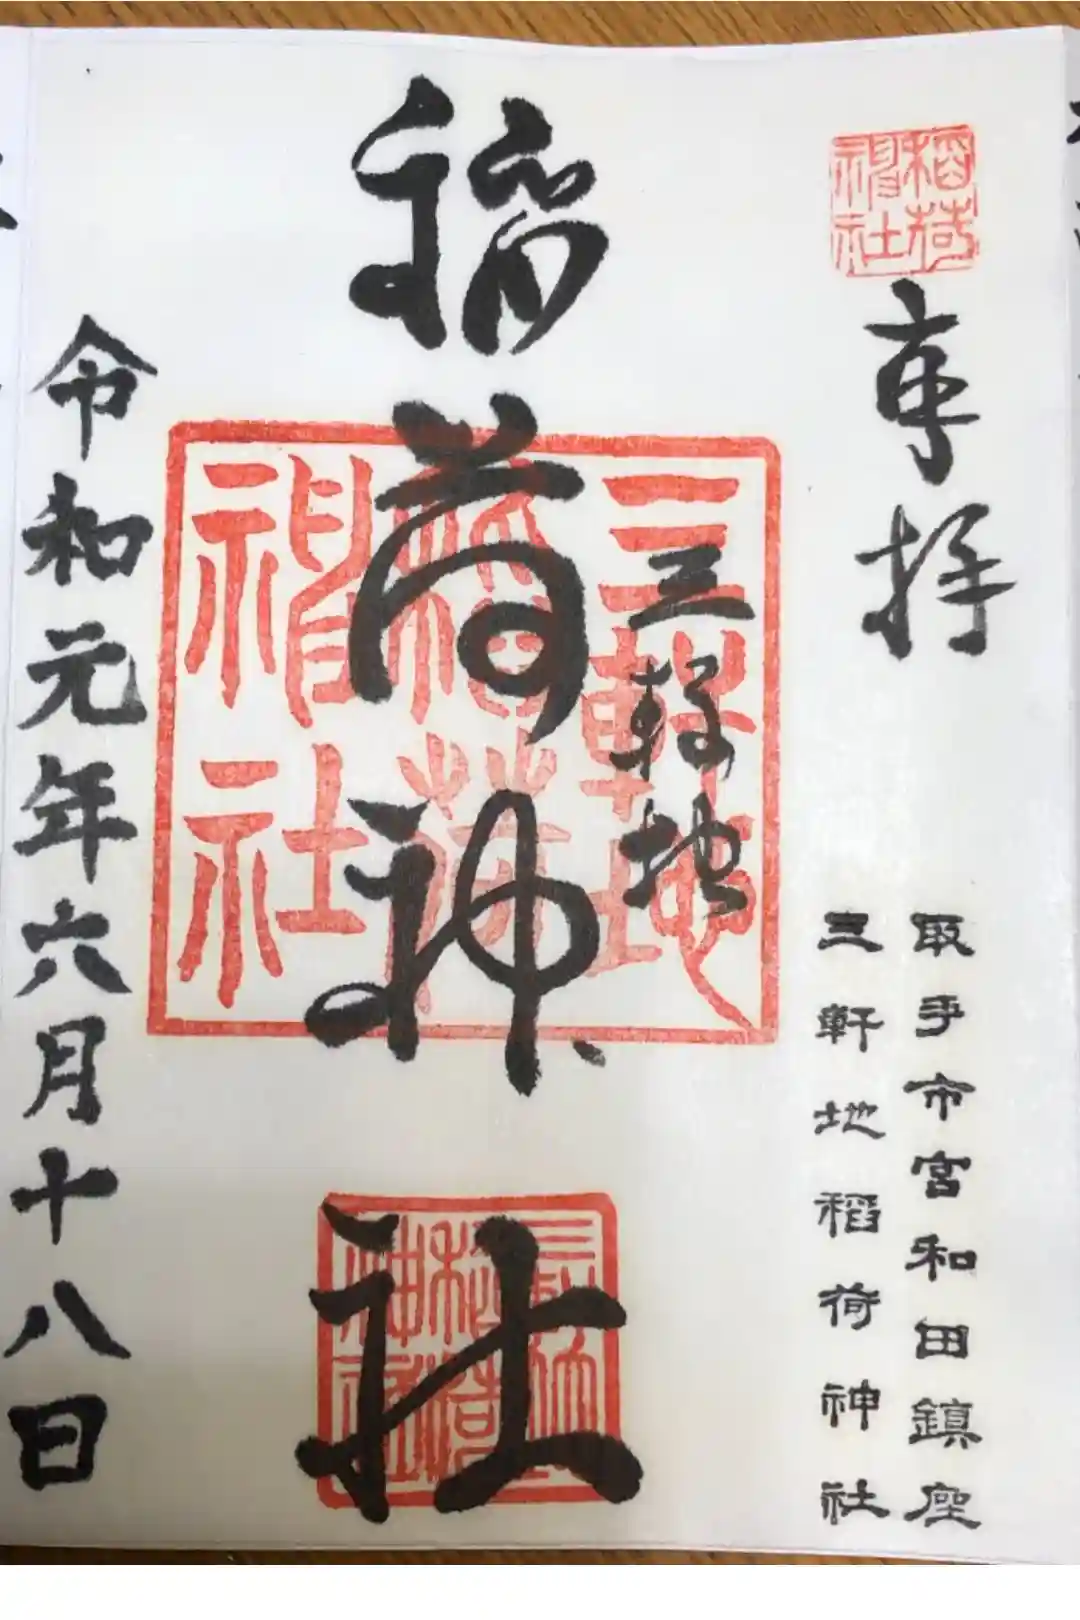 稲荷
神社
奉拝
取手市宮和田鎮座
三軒地稲荷神社
三軒地
三軒地
稲荷
神社
稲荷神社
令和元年六月十八日